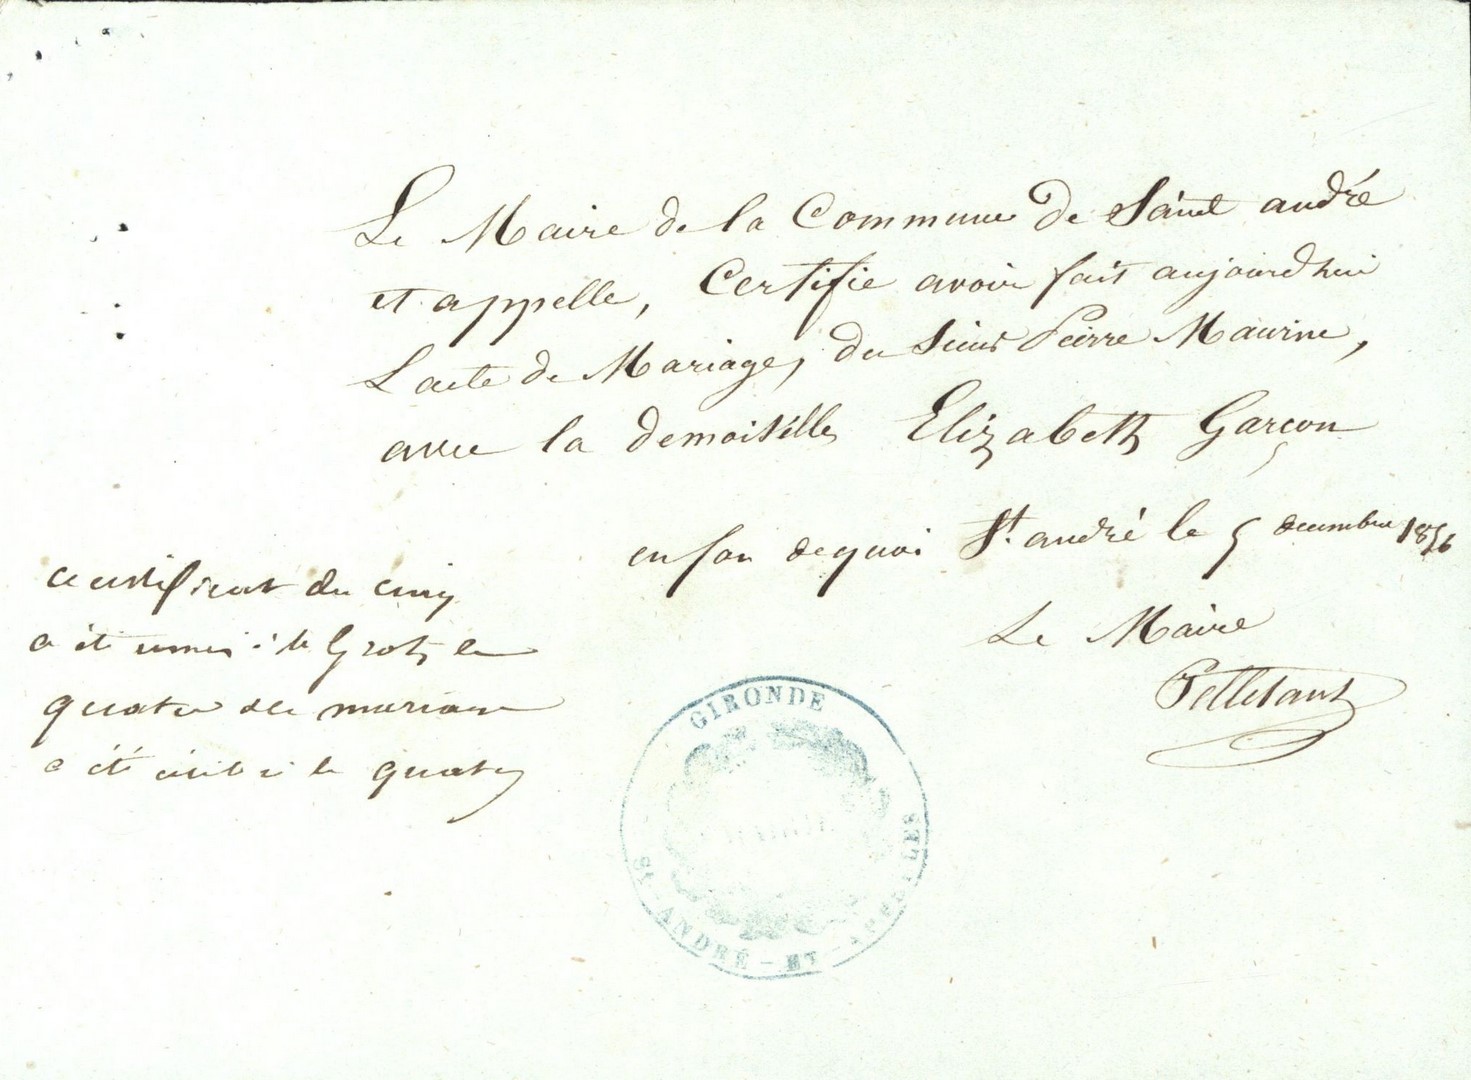 Le Maire de la Commune de Saint andré
et appelle, Certifie avoir fait aujourdhui
Lacte de Mariage, du Sieur Pierre Maurine,
avec la demoiselle Elizabeth Garçon
en foi de quoi St. andré le 5 decembre 1856
Le Maire
certificat du cinq
a été
quatre
a été le quatre
GIRONDE
MAIRIE
St ANDRÉ - ET - APPELLES